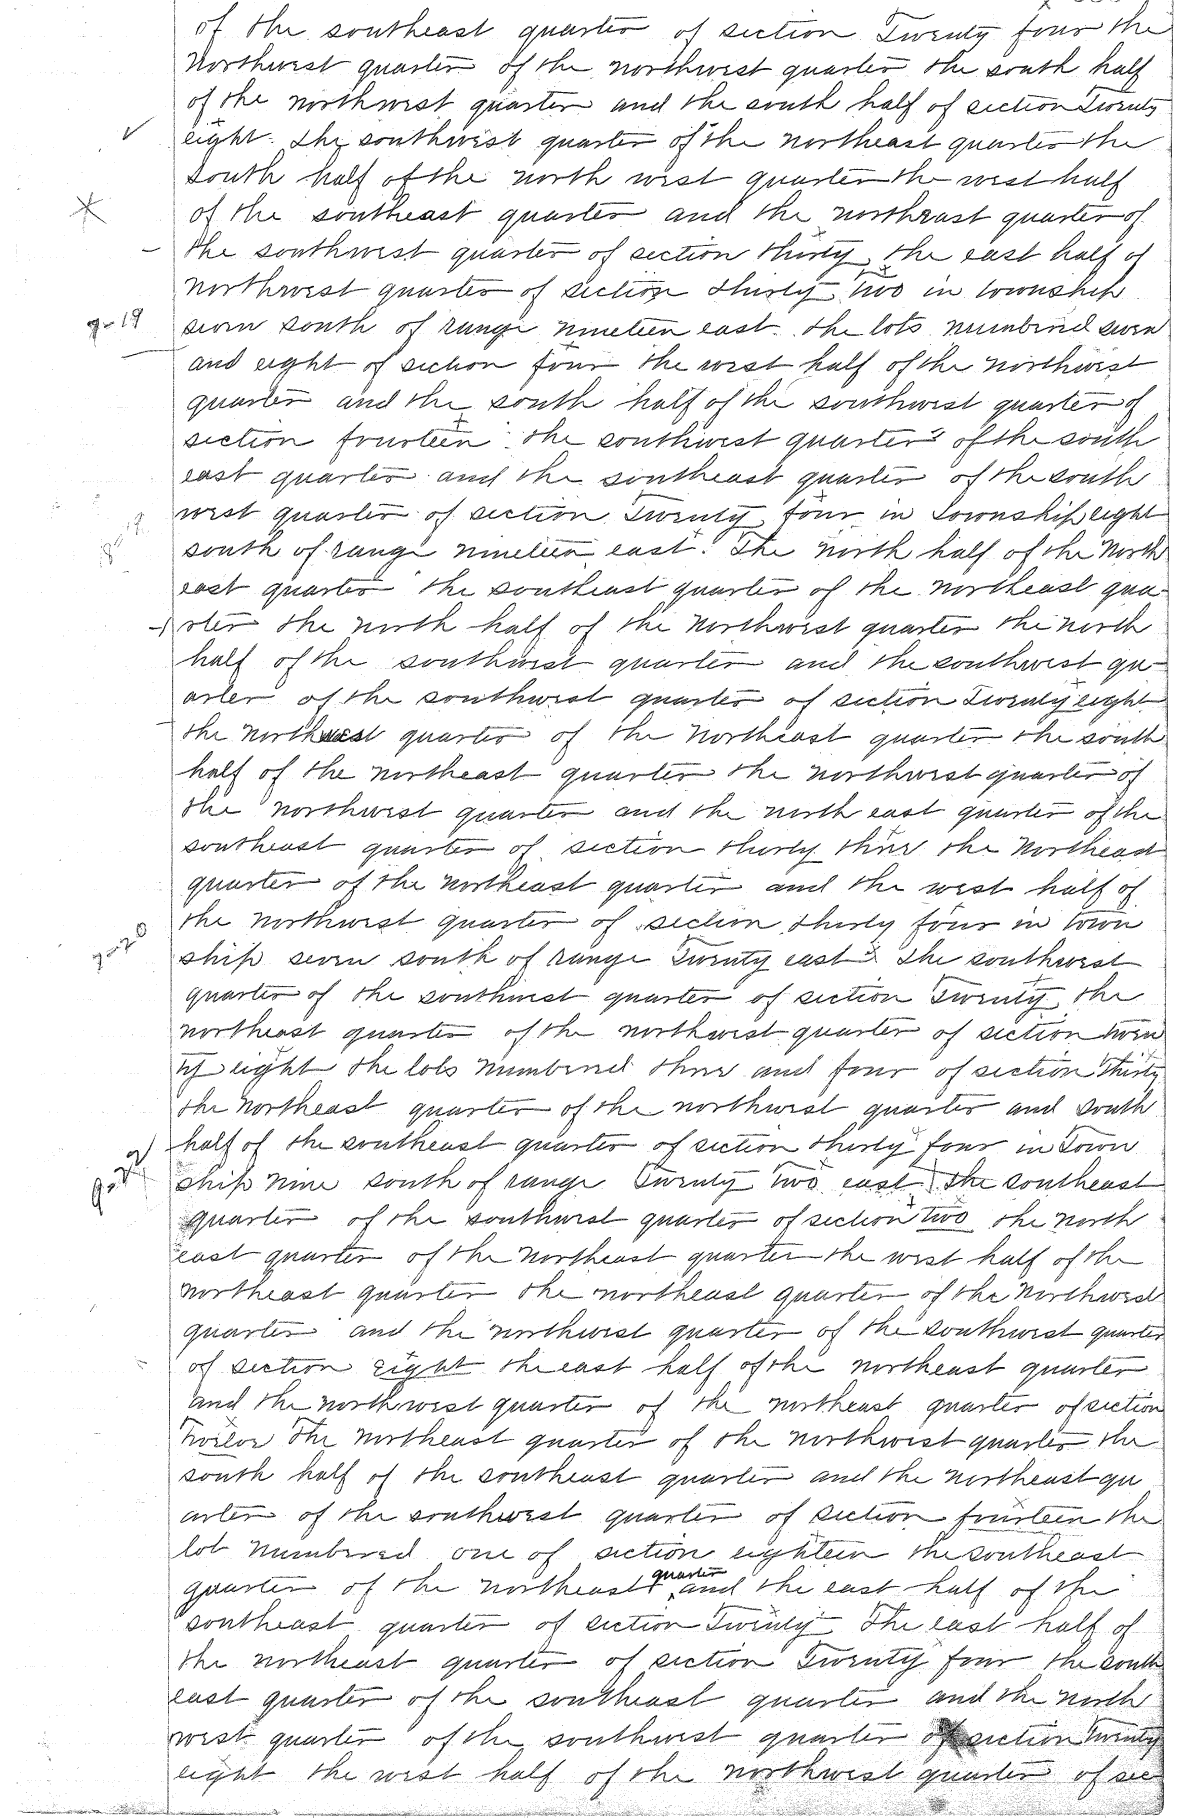 of the southeast quarter of section Twenty four the
Northwest quarter of the northwest quarter the south half
of the northwest quarter and the south half of section Twenty
eight. The southwest quarter of the northeast quarter the
south half of the north west quarter the west half
of the southeast quarter and the northeast quarter of
the southwest quarter of section thirty the east half of
northwest quarter of section thirty two in township
7-19 seven south of range nineteen east. the lots numbered seven
and eight of section four the west half of the northwest
quarter and the south half of the southwest quarter of
section fourteen the southwest quarter of the south
east quarter and the southeast quarter of the south
west quarter of section Twenty four in Township eight
8-19 south of range nineteen east. The north half of the North
east quarter the southeast quarter of the northeast qua-
rter the north half of the Northwest quarter the north
half of the southwest quarter and the southwest qu-
arter of the southwest quarter of section Twenty eight
the Northwest quarter of the Northeast quarter the south
half of the northeast quarter the northwest quarter of
the northwest quarter and the north east quarter of the
southeast quarter of section thirty three the Northeast
quarter of the northeast quarter and the west half of
the northwest quarter of section thirty four in town
7-20 ship seven south of range Twenty east The southwest
quarter of the southwest quarter of section Twenty the
northeast quarter of the northwest quarter of section twen
ty eight the lots numbered three and four of section thirty
the northeast quarter of the northwest quarter and south
half of the southeast quarter of section thirty four in Town
9-22 ship nine south of range Twenty two east The southeast
quarter of the southwest quarter of section two the north
east quarter of the northeast quarter the west half of the
northeast quarter the northeast quarter of the Northwest
quarter and the northwest quarter of the southwest quarter
of section eight the east half of the northeast quarter
and the northwest quarter of the northeast quarter of section
Twelve The northeast quarter of the northwest quarter the
south half of the southeast quarter and the northeast qu
arter of the southwest quarter of section fourteen the
lot numbered one of section eighteen the southeast
quarter of the northeast quarter and the east half of the
southeast quarter of section Twenty The east half of
the northeast quarter of section Twenty four the south
east quarter of the southeast quarter and the north
west quarter of the southwest quarter of section Twenty
eight the west half of the northwest quarter of sec